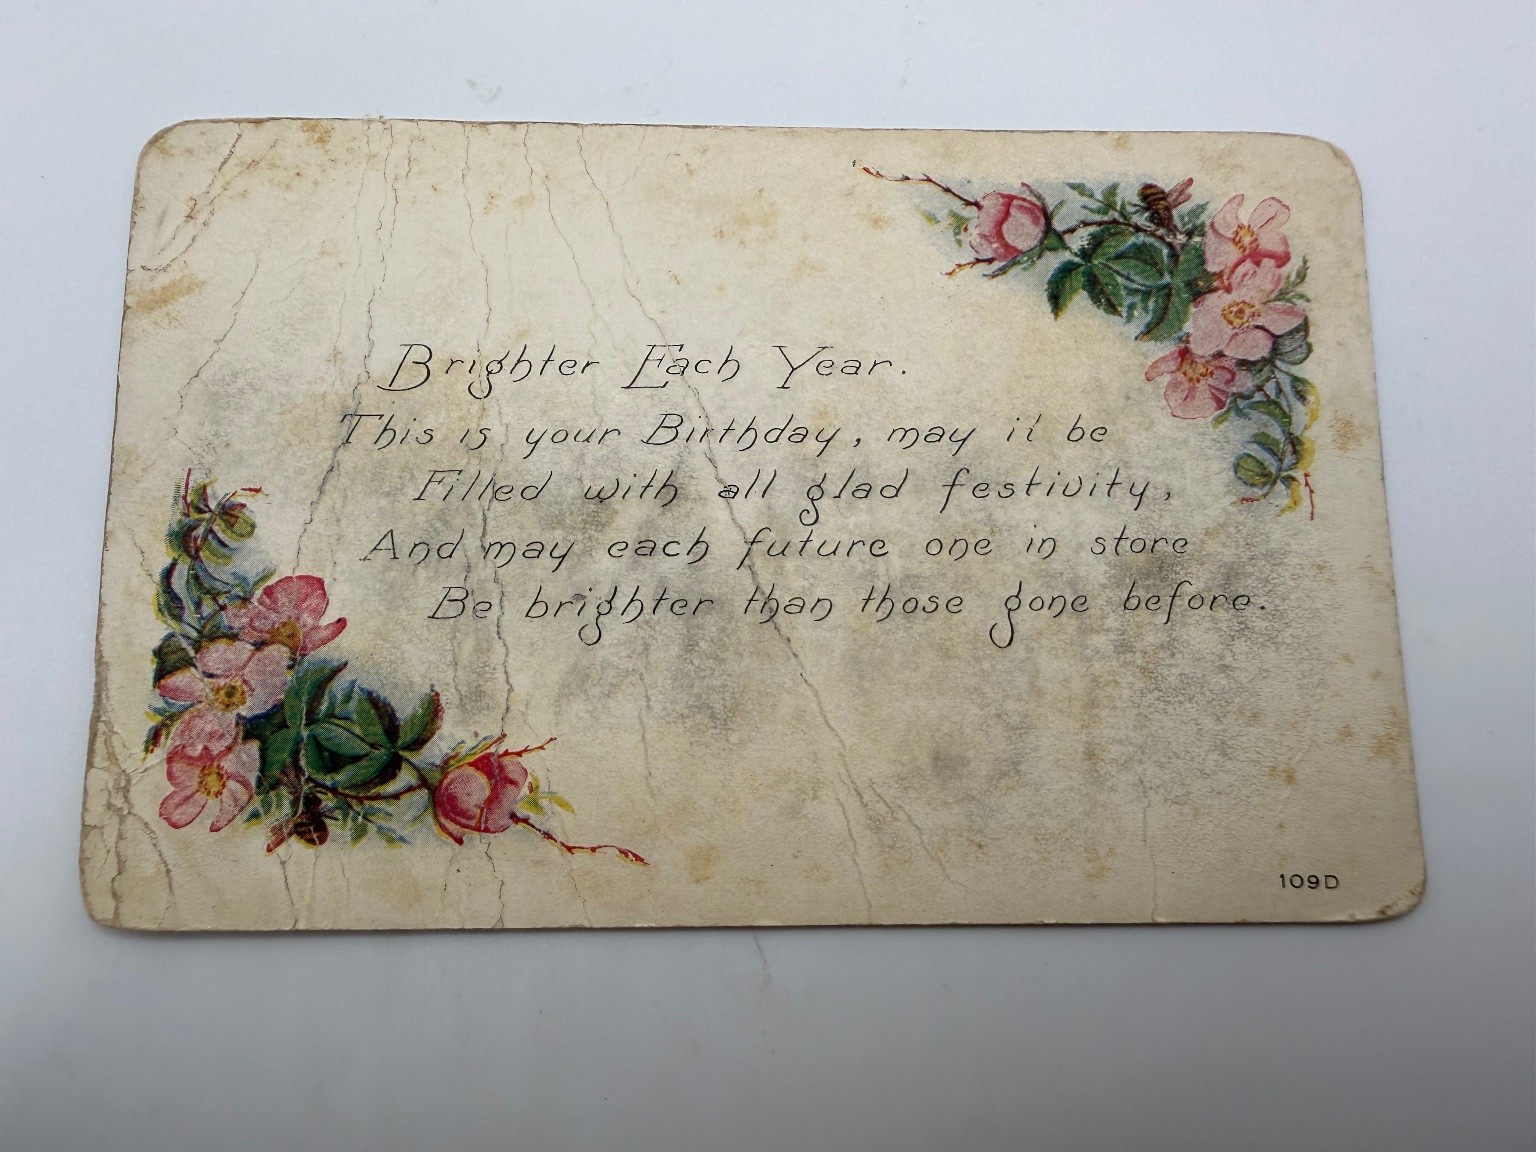 Brighter Each Year.
This is your Birthday, may it be
Filled with all glad festivity,
And may each future one in store
Be brighter than those gone before.
109D